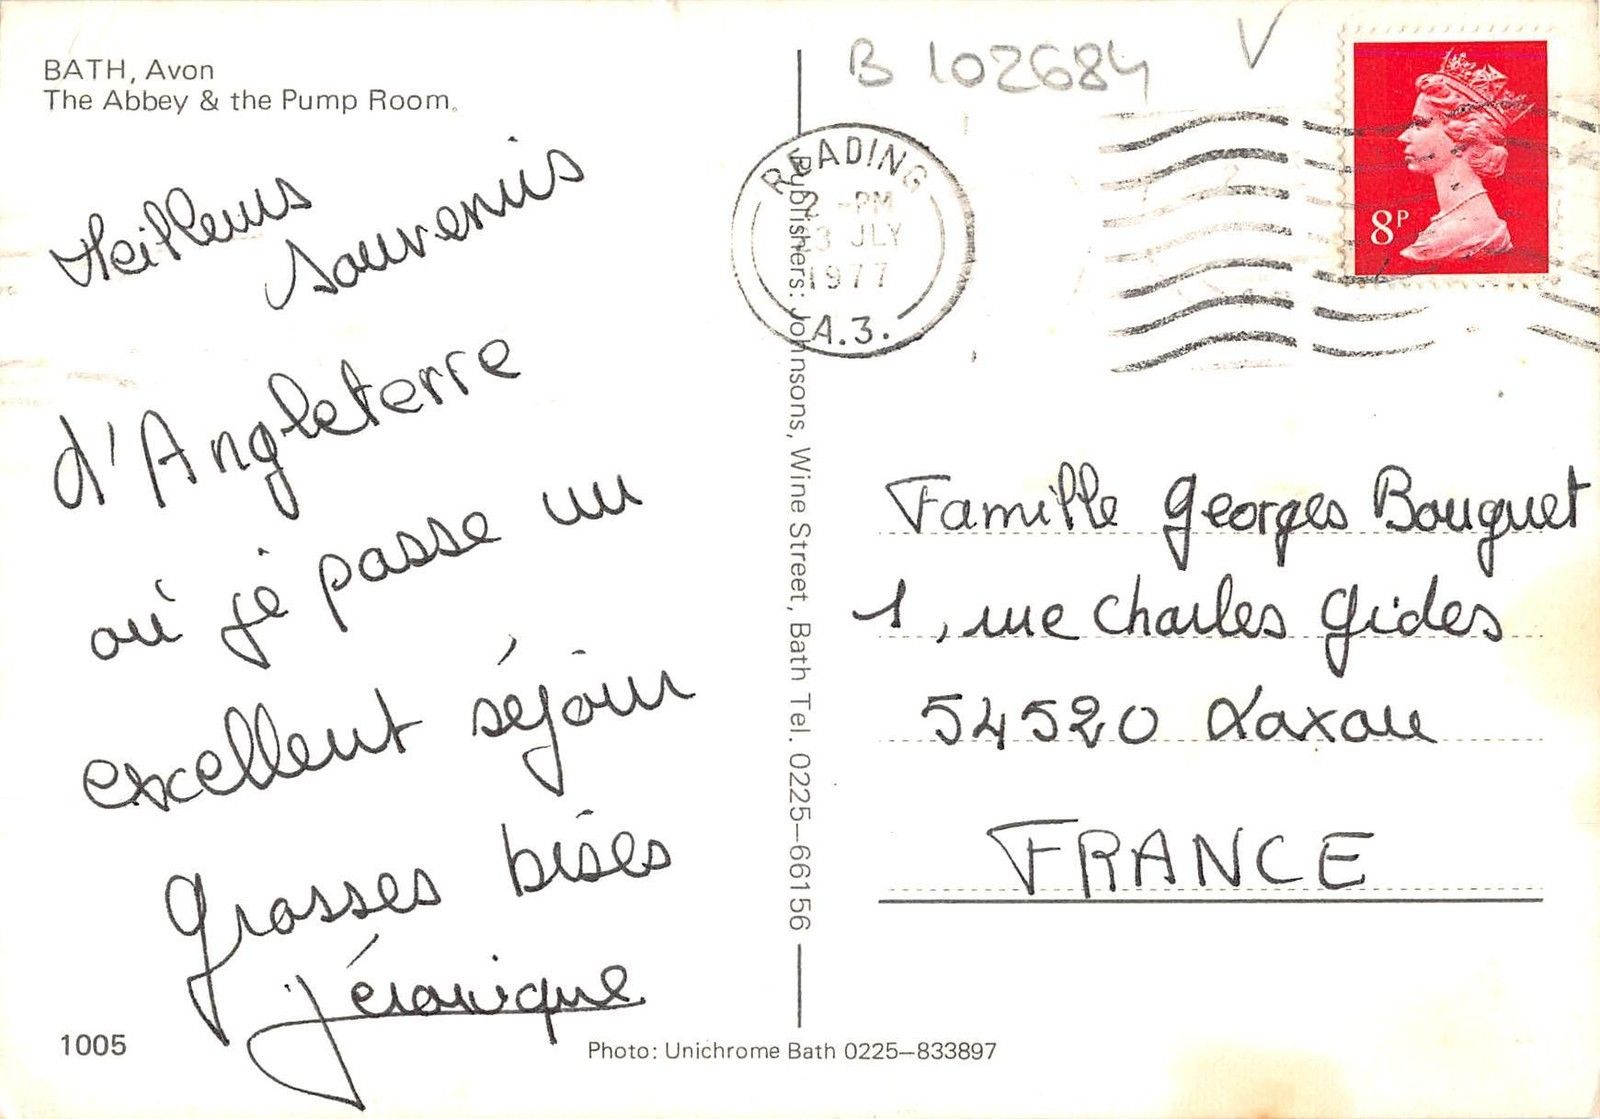 BATH, Avon
The Abbey & the Pump Room.
Meilleurs
souvenirs
d'Angleterre
où je passe un
excellent séjour
Grosses bises
Véronique
1005
Photo: Unichrome Bath 0225–833897
Publishers: Johnsons, Wine Street, Bath Tel. 0225–66156
B 102684 V
READING
-PM
JLY
1977
A.3.
8P
Famille Georges Bouquet
1, rue Charles Gides
54520 Laxou
FRANCE